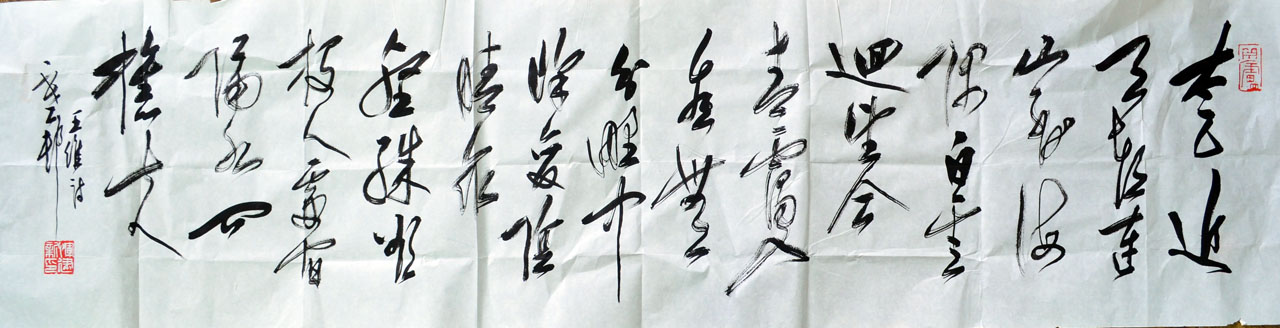 太乙近
天都連
山到海
隅白雲
迴望合
青靄入
看無
分野中
峰變陰
晴眾
壑殊欲
投人處宿
隔水問
樵夫
王維詩